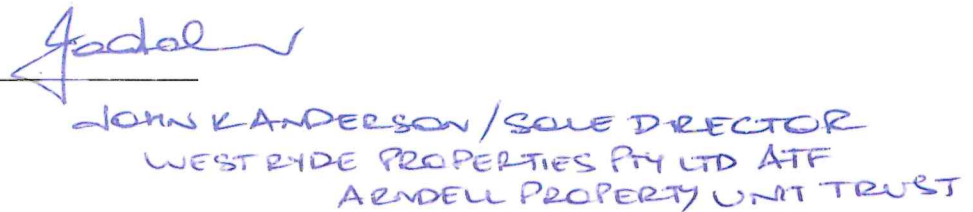 JOHN K ANDERSON/SOLE DIRECTOR
WEST RYDE PROPERTIES PTY LTD ATF
ARNDELL PROPERTY UNIT TRUST